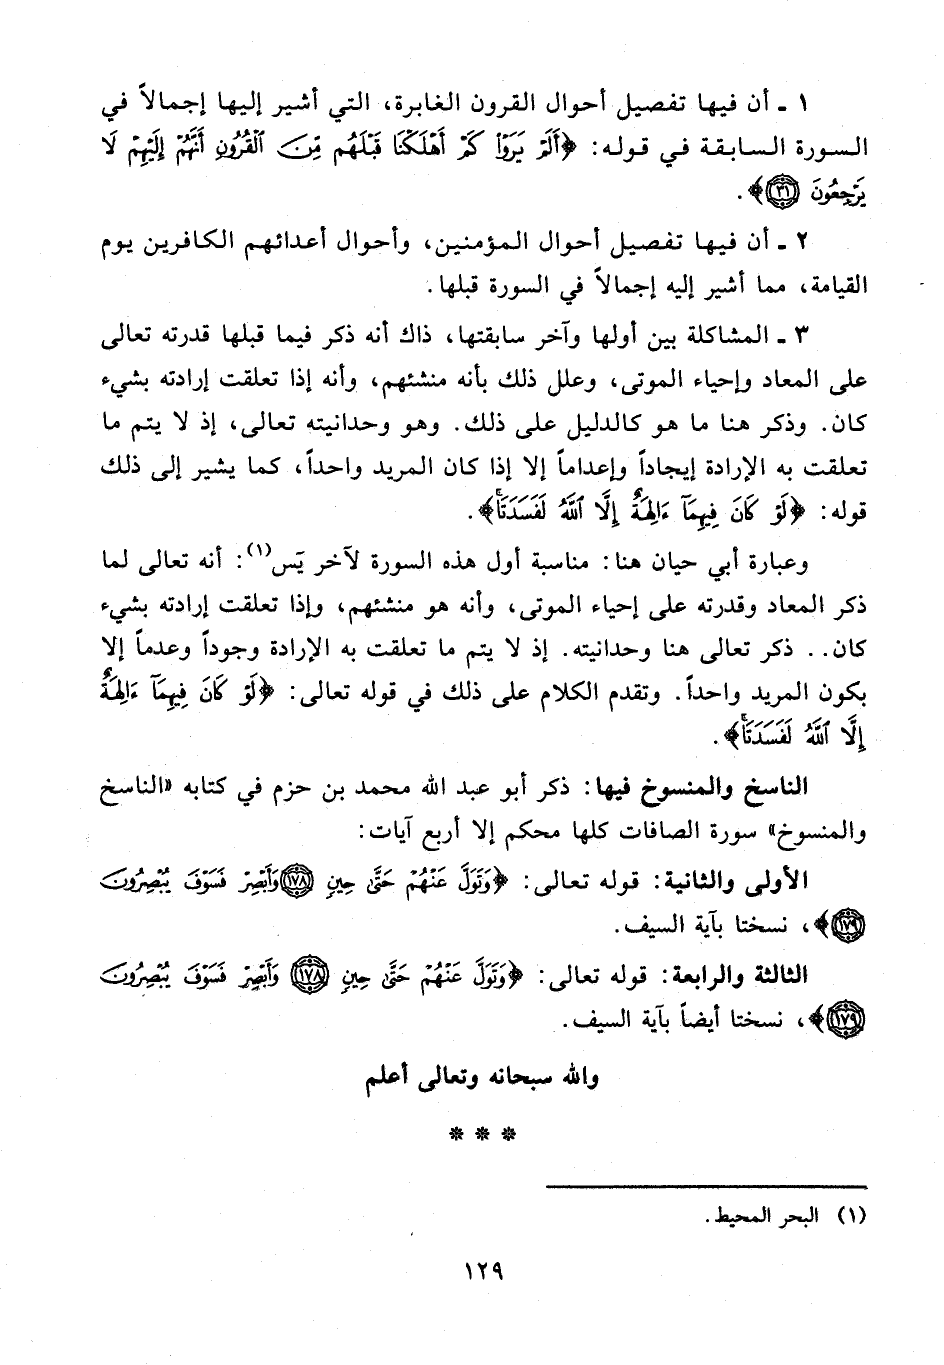 ١ ـ أن فيها تفصيل أحوال القرون الغابرة، التي أشير إليها إجمالاً في
السورة السابقة في قوله: ﴿أَلَمْ يَرَوْا۟ كَمْ أَهْلَكْنَا قَبْلَهُم مِّنَ ٱلْقُرُونِ أَنَّهُمْ إِلَيْهِمْ لَا
يَرْجِعُونَ ٣١﴾.
٢ ـ أن فيها تفصيل أحوال المؤمنين، وأحوال أعدائهم الكافرين يوم
القيامة، مما أشير إليه إجمالاً في السورة قبلها.
٣ ـ المشاكلة بين أولها وآخر سابقتها، ذاك أنه ذكر فيما قبلها قدرته تعالى
على المعاد وإحياء الموتى، وعلل ذلك بأنه منشئهم، وأنه إذا تعلقت إرادته بشيء
كان. وذكر هنا ما هو كالدليل على ذلك. وهو وحدانيته تعالى، إذ لا يتم ما
تعلقت به الإرادة إيجاداً وإعداماً إلا إذا كان المريد واحداً، كما يشير إلى ذلك
قوله: ﴿لَوْ كَانَ فِيهِمَآ ءَالِهَةٌ إِلَّا ٱللَّهُ لَفَسَدَتَاۚ﴾.
وعبارة أبي حيان هنا: مناسبة أول هذه السورة لآخر يَس(١): أنه تعالى لما
ذكر المعاد وقدرته على إحياء الموتى، وأنه هو منشئهم، وإذا تعلقت إرادته بشيء
كان.. ذكر تعالى هنا وحدانيته. إذ لا يتم ما تعلقت به الإرادة وجوداً وعدماً إلا
بكون المريد واحداً. وتقدم الكلام على ذلك في قوله تعالى: ﴿لَوْ كَانَ فِيهِمَآ ءَالِهَةٌ
إِلَّا ٱللَّهُ لَفَسَدَتَاۚ﴾.
الناسخ والمنسوخ فيها: ذكر أبو عبد الله محمد بن حزم في كتابه «الناسخ
والمنسوخ» سورة الصافات كلها محكم إلا أربع آيات:
الأولى والثانية: قوله تعالى: ﴿وَتَوَلَّ عَنْهُمْ حَتَّىٰ حِينٍ ١٧٨ وَأَبْصِرْ فَسَوْفَ يُبْصِرُونَ
١٧٩﴾، نسختا بآية السيف.
الثالثة والرابعة: قوله تعالى: ﴿وَتَوَلَّ عَنْهُمْ حَتَّىٰ حِينٍ ١٧٨ وَأَبْصِرْ فَسَوْفَ يُبْصِرُونَ
١٧٩﴾، نسختا أيضاً بآية السيف.
والله سبحانه وتعالى أعلم
* * *
(١) البحر المحيط.
١٢٩